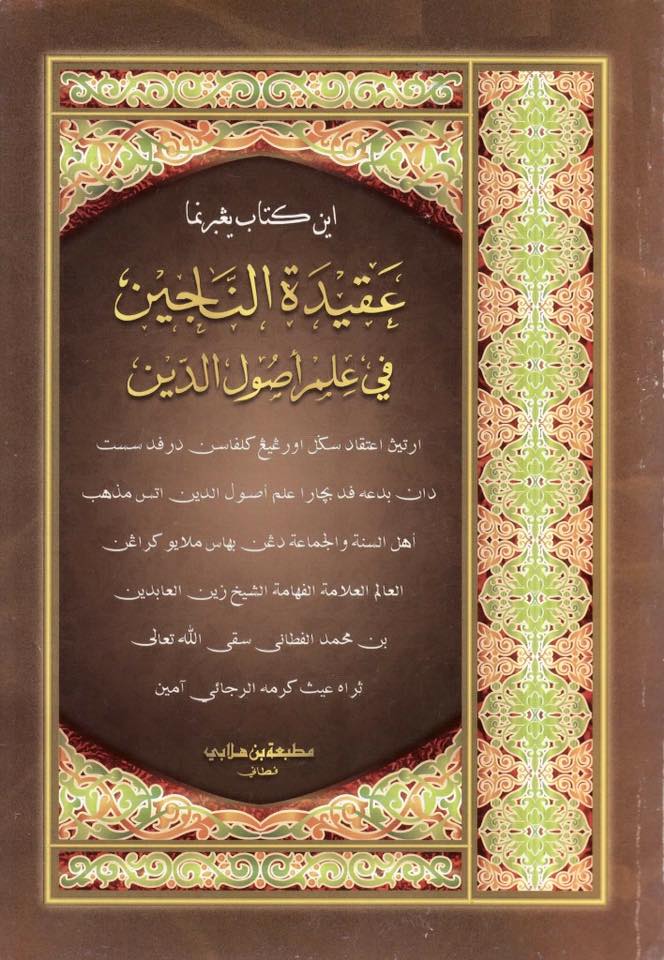 اين كتاب يڠبرنما
عَقِيدَة النَّاجِين
فِي عِلْم أُصُول الدِّين
ارتيڽ اعتقاد سكل اورڠيڠ كلفاسن درفد سست
دان بدعه فد بچارا علم أصول الدين اتس مذهب
أهل السنة والجماعة دڠن بهاس ملايو كراڠن
العالم العلامة الفهامة الشيخ زين العابدين
بن محمد الفطاني سقى الله تعالى
ثراه غيث كرمه الرجائي آمين
مطبعة بن هلابي
فطاني